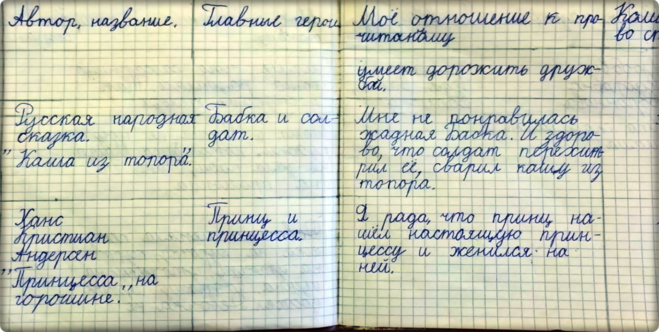 Автор, название.
Главные герои
Моё отношение к про-
читаному
умеет дорожить друж-
бой.
Русская народная
сказка.
"Каша из топора".
Бабка и сол-
дат.
Мне не понравилась
жадная бабка. И здоро-
во, что солдат перехит-
рил её, сварил кашу из
топора.
Ханс
Кристиан
Андерсен
"Принцесса на
горошине".
Принц и
принцесса.
Я рада, что принц на-
шёл настоящую прин-
цессу и женился на
ней.